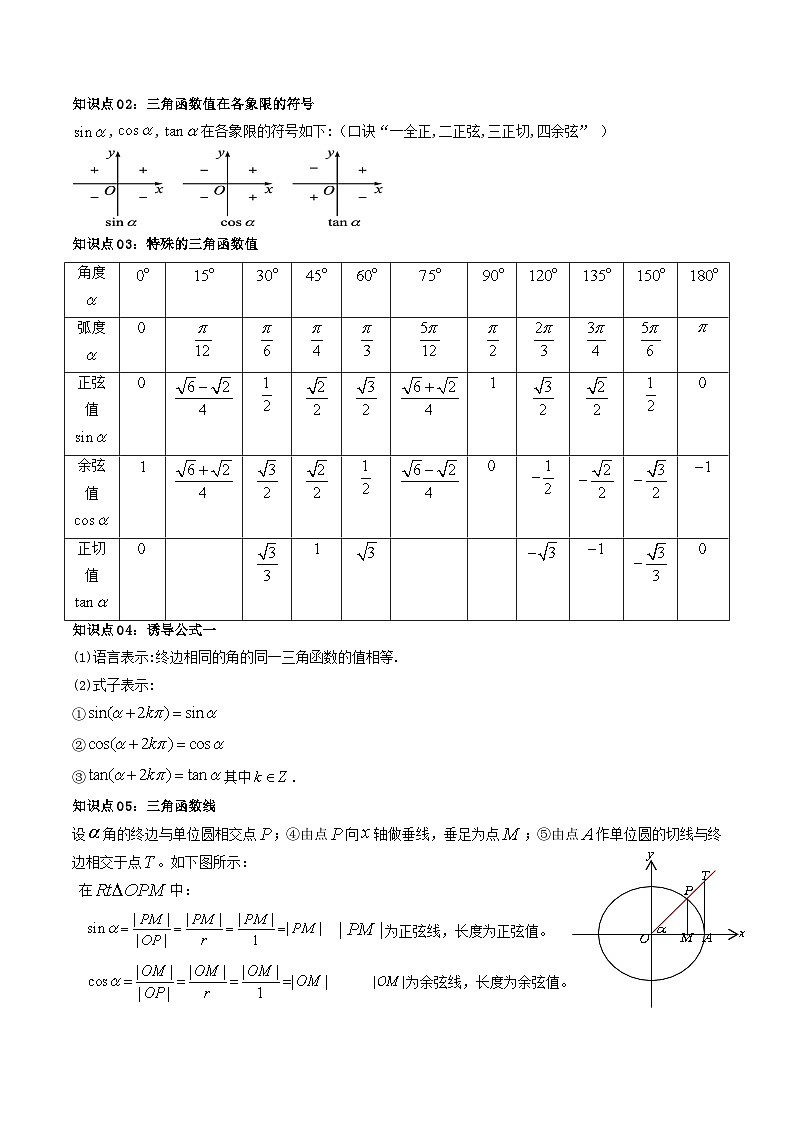 知识点02：三角函数值在各象限的符号
sinα，cosα，tanα在各象限的符号如下：（口诀“一全正,二正弦,三正切,四余弦” ）
y y y
+ + − + − +
O x O x O x
− − − + + −
sinα cosα tanα
知识点03：特殊的三角函数值
角度α 0° 15° 30° 45° 60° 75° 90° 120° 135° 150° 180°
弧度α 0 π/12 π/6 π/4 π/3 5π/12 π/2 2π/3 3π/4 5π/6 π
正弦值sinα 0 (√6−√2)/4 1/2 √2/2 √3/2 (√6+√2)/4 1 √3/2 √2/2 1/2 0
余弦值cosα 1 (√6+√2)/4 √3/2 √2/2 1/2 (√6−√2)/4 0 −1/2 −√2/2 −√3/2 −1
正切值tanα 0 √3/3 1 √3 −√3 −1 −√3/3 0
知识点04：诱导公式一
(1)语言表示:终边相同的角的同一三角函数的值相等.
(2)式子表示:
①sin(α+2kπ)=sinα
②cos(α+2kπ)=cosα
③tan(α+2kπ)=tanα其中k∈Z．
知识点05：三角函数线
设α角的终边与单位圆相交点P；④由点P向x轴做垂线，垂足为点M；⑤由点A作单位圆的切线与终
边相交于点T。如下图所示：
在RtΔOPM中：
sinα=|PM|/|OP|=|PM|/r=|PM|/1=|PM| |PM|为正弦线，长度为正弦值。
cosα=|OM|/|OP|=|OM|/r=|OM|/1=|OM| |OM|为余弦线，长度为余弦值。
y
T
P
O α M A x